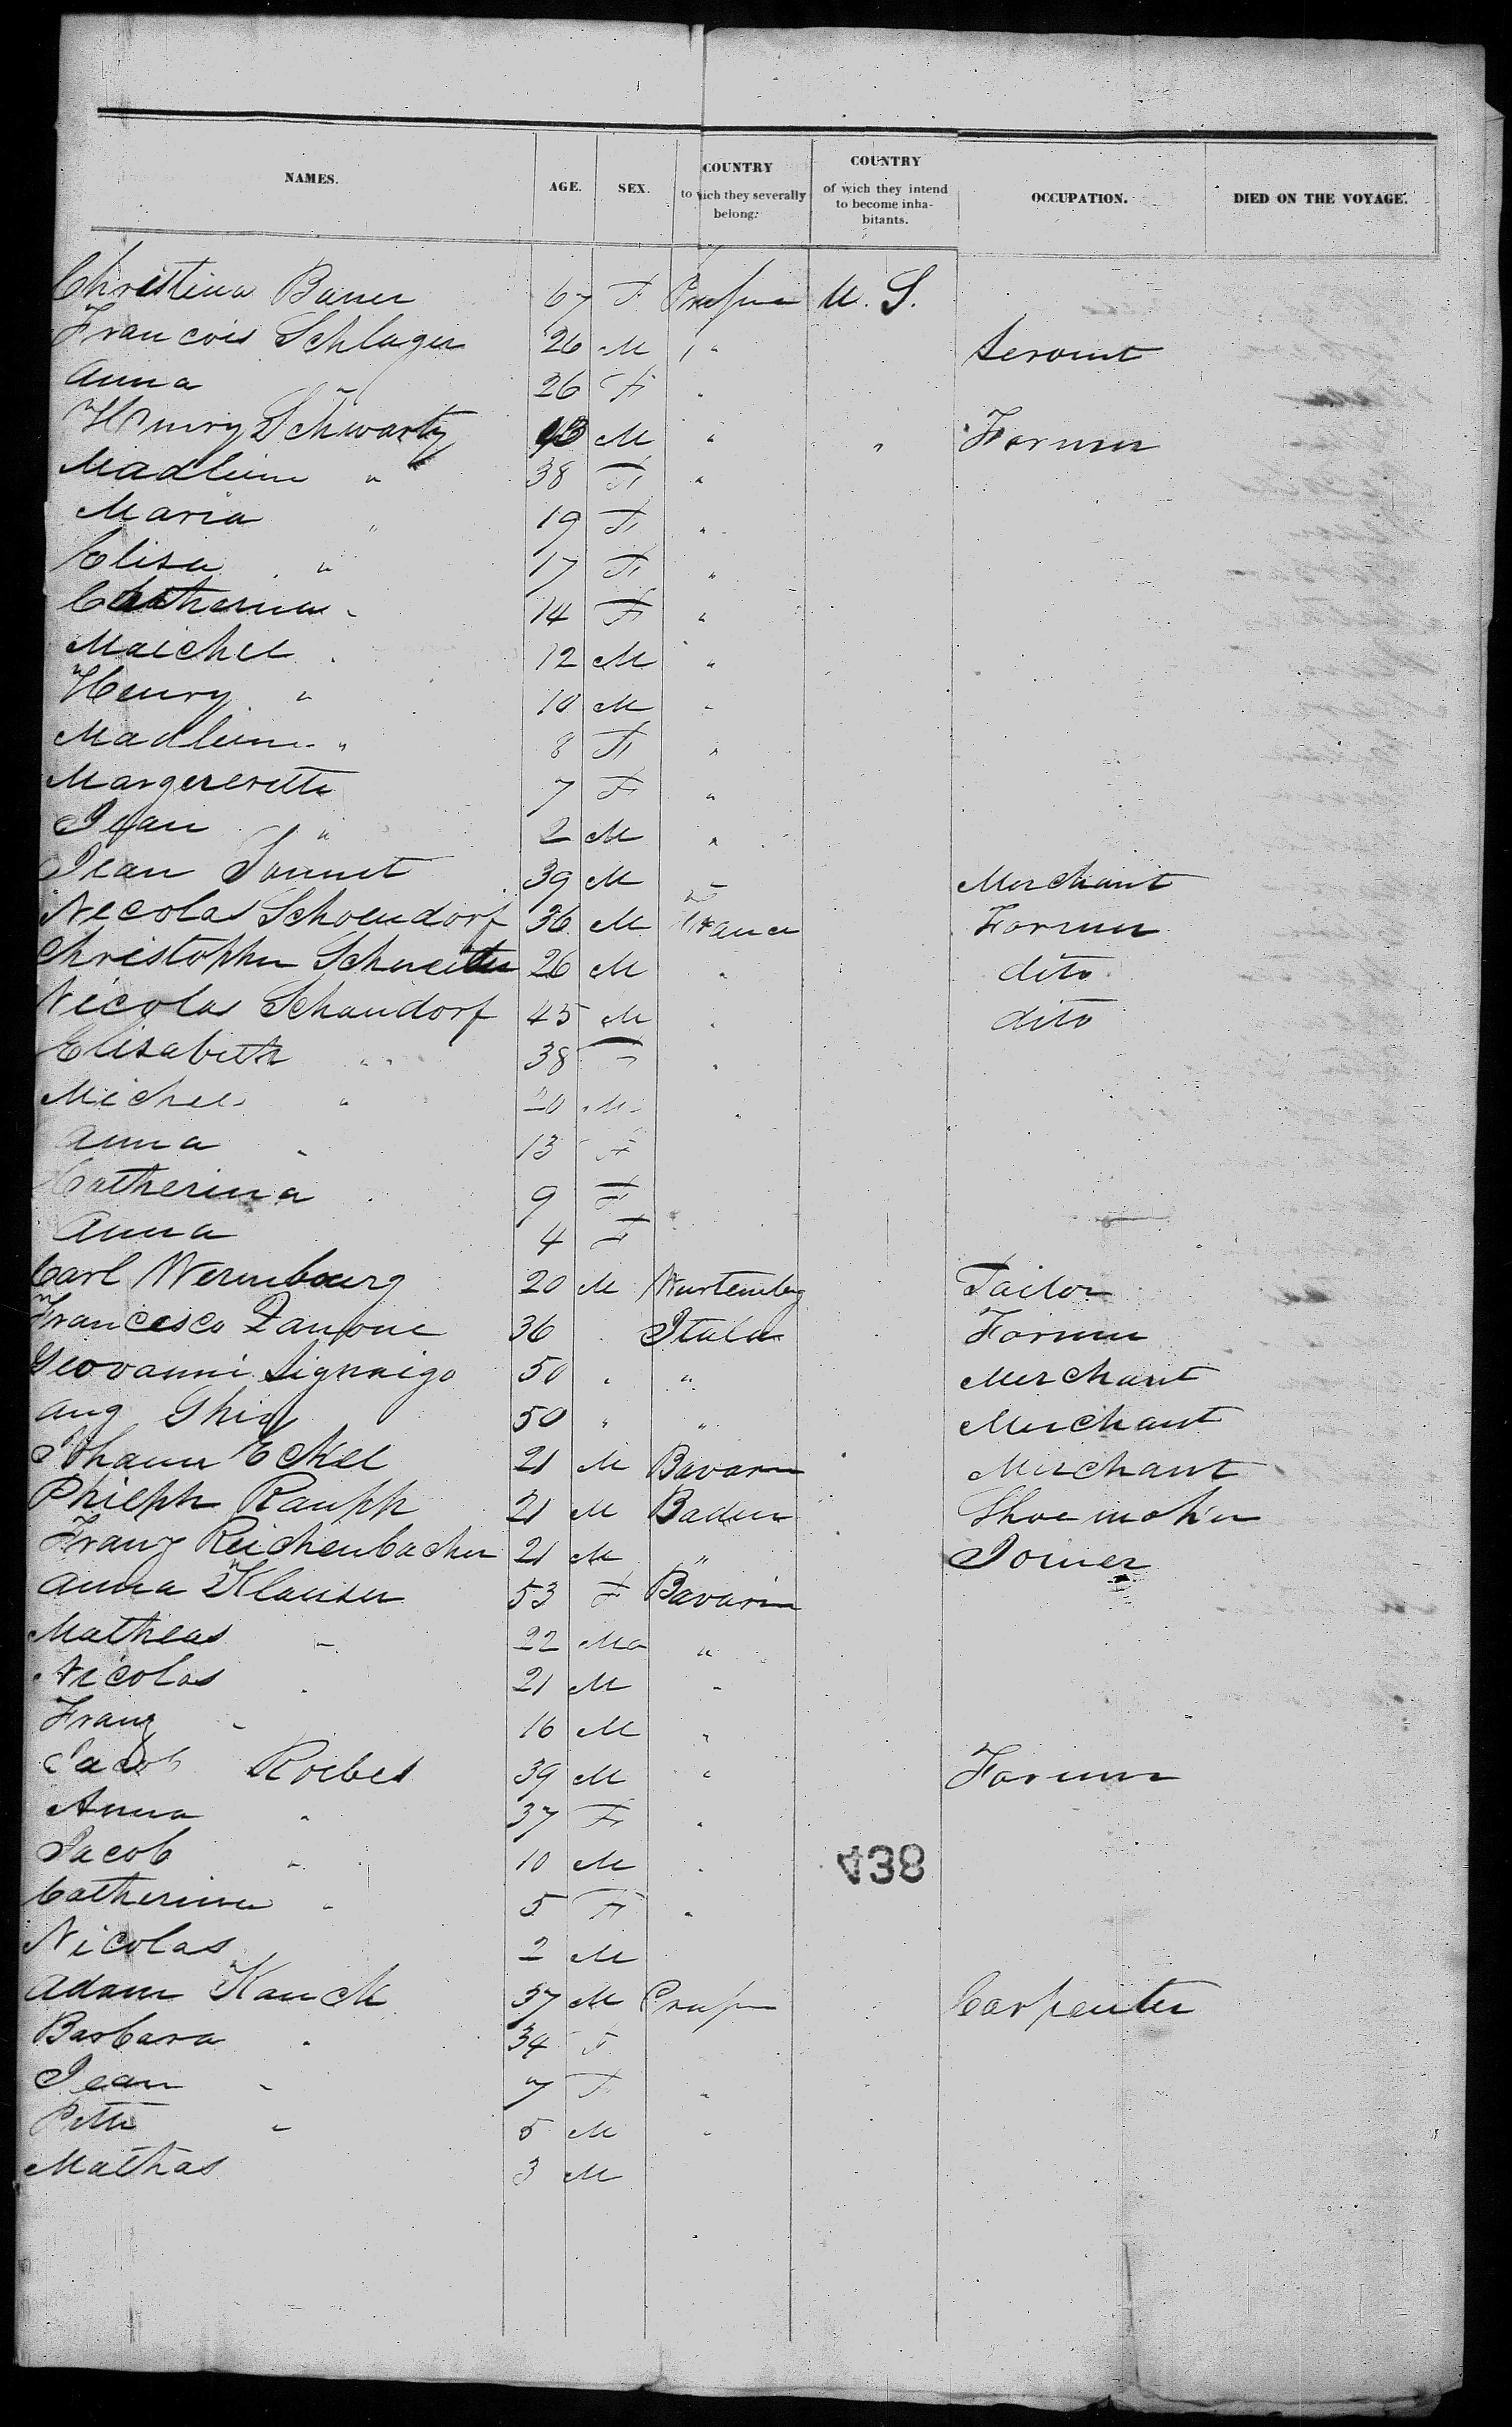 NAMES. AGE. SEX. COUNTRY to wich they severally belong. COUNTRY of wich they intend to become inhabitants. OCCUPATION. DIED ON THE VOYAGE.
Christina Bauer 67 F Prussia U. S.
Francois Schlager 26 M " Servant
Anna " 26 F "
Henry Schwartz M " " Farmer
Madleine " 38 F "
Maria " 19 F "
Elisa " 17 F "
Catherina " 14 F "
Maichel " 12 M "
Henry " 10 M "
Madleine " 8 F "
Margereritte 7 F "
Jean " 2 M "
Jean 39 M " Merchant
Nicolas Schoendorf 36 M France Farmer
Christopher 26 M " dito
Nicolas Schandorf 45 M " dito
Elisabeth " 38 F "
Michel " 20 M "
Anna " 13 F
Catherina " 9 F
Anna 4 F
Carl Wermbourg 20 M Wurtemberg Tailor
Francesco Zanone 36 " Italia Farmer
Giovanni Signaigo 50 " " Merchant
Aug 50 " " Merchant
Johann Eckel 21 M Bavaria Merchant
Phieph Raupp 21 M Baden Shoemaker
Franz Reichenbacher 21 M " Joiner
Anna Klauser 53 F Bavaria
Matheas " 22 Ma "
Nicolas " 21 M "
Franz " 16 M "
Jacob Roebes 39 M " Farmer
Anna " 37 F "
Jacob " 10 M "
438
Catherina " 5 F "
Nicolas 2 M
Adam Kauck 37 M Prussia Carpenter
Barbara " 34 F
Jean " 7 F "
" 5 M "
Mathas 3 M